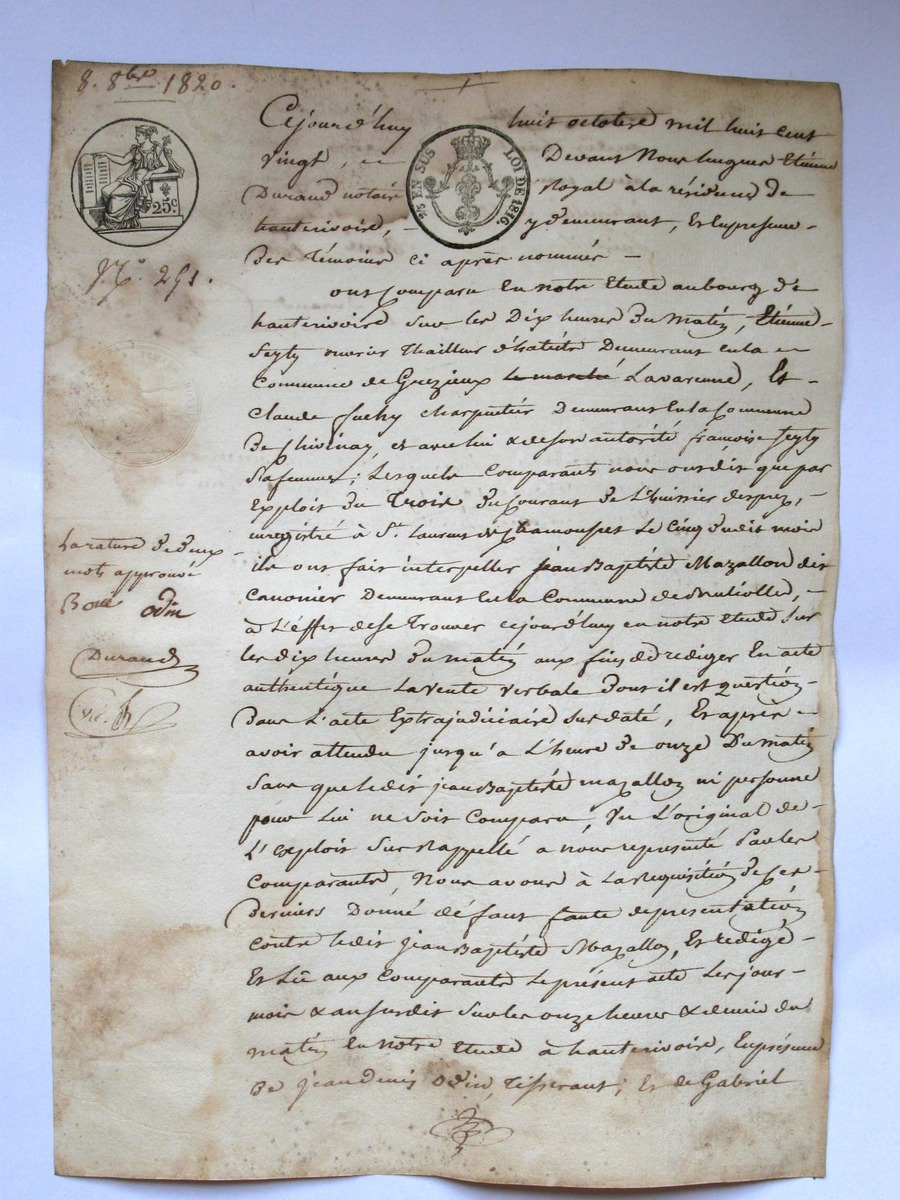 8. 8bre 1820.
Cejourd'huy huit octobre mil huit cent
vingt, et Devant Nous hugues Etiénne
Durand notaire Royal à la résidence de
hauterivoire, y demeurant, Et en presence
Des Témoins ci après nommés
ont Comparu En notre Etude au bourg de
hauterivoire sur les Dix heures Du Matin, Etiénne
Seyty ouvrier thailleur d'habits Demeurant en la
Commune de Grezieux le marché Lavarenne, Et
Claude fuchy charpentier Demeurant En la Commune
De Chivinay, et avec lui & de son autorité françoise Seyty
Sa femme; Lesquels Comparants nous ont dit que par
Exploit Du Trois Du Courant de L'huissier desprez,
enregistré à St. Laurent de Chamousset Le Cinq Dudit mois
ils ont fait interpeller jean Baptiste Mazallon dit
Canonier Demeurant En la Commune de Brutiolles,
à L'effet de se Trouver cejourd'huy en notre Etude Sur
les dix heures du matin aux fins de rediger En acte
authentique La vente verbale Dont il est question
Dans L'acte Extrajudiciaire Sus daté, Et après
avoir attendu jusqu'à L'heure De onze Du Matin
Sans que ledit jean Baptiste mazallon ni personne
pour Lui ne Soit Comparu, Vu L'original de
L'Exploit Sus Rappellé à nous representé Par les
Comparants, Nous avons à La Réquisition De Ces
Derniers Donné défaut faute de presentation
Contre ledit jean Baptiste Mazallon, Et redigé
Et Lû aux Comparants Le présent acte Les jour
mois & an susdit Sur les onze heures & demie du
matin En notre Etude à hauterivoire, En présence
De jean denis Odin, Tisserant; Et de Gabriel
25c.
2/5 EN SUS LOI DE 1816.
No. 251.
La rature De deux
mots approuvée
Bonne odin
Durand